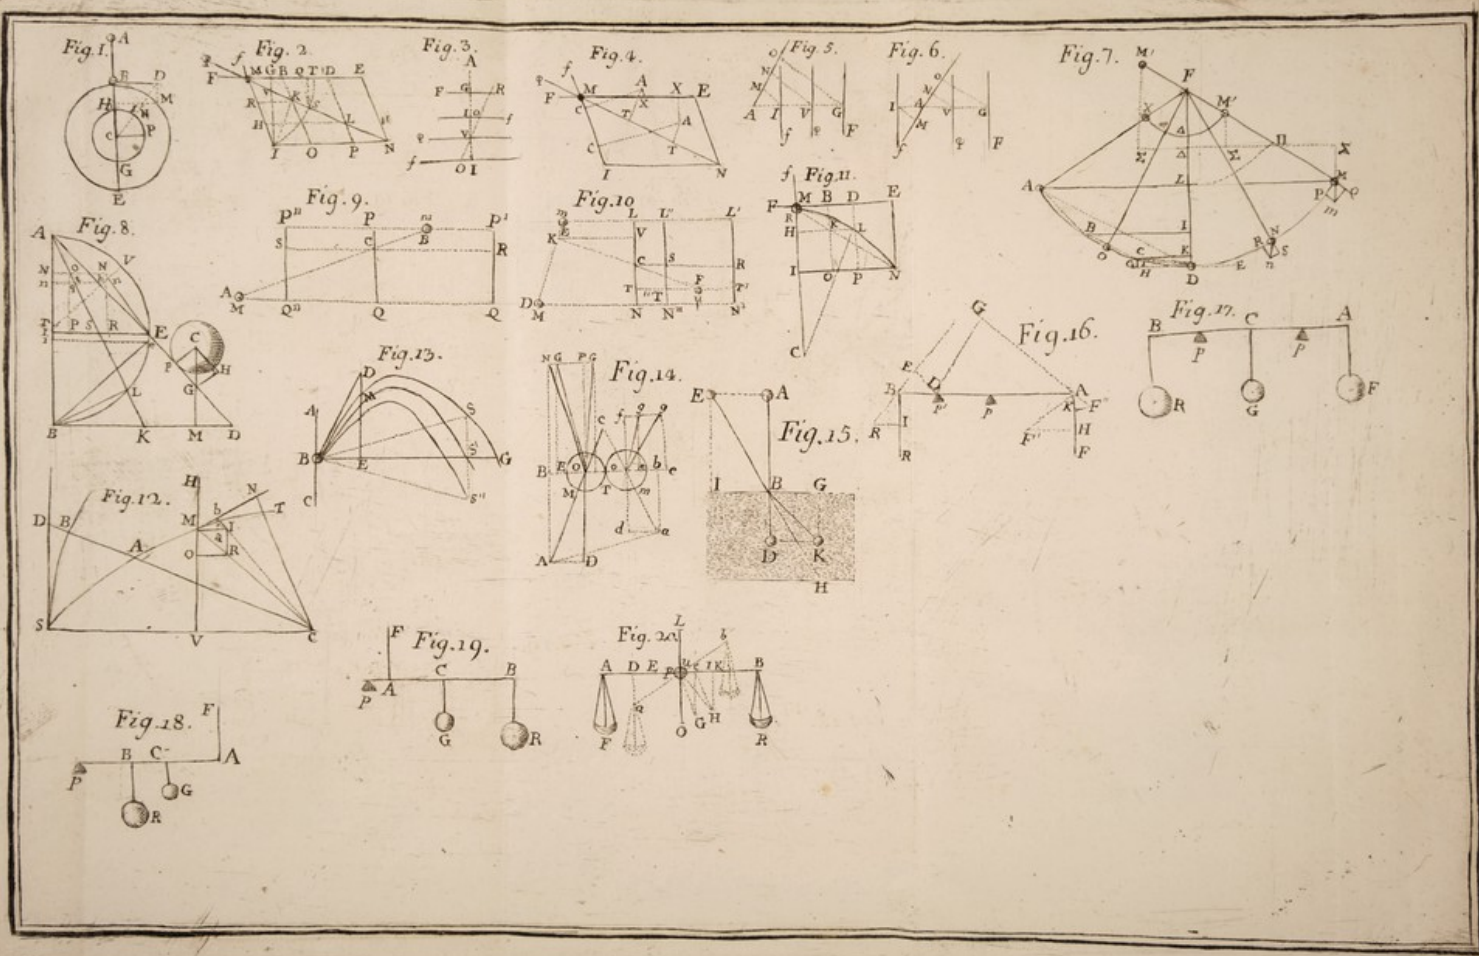 Fig.1.
A
B
D
H
M
N
C
P
G
E
Fig. 2.
φ
f
F
M G B Q T D E
V
K
R
S
H
L
I O P N
Fig.3.
A
F G R
L
f
φ
V
f
O I
Fig.4.
φ
f
F M A X E
C
X
T
A
C
T
I N
Fig.5.
O
N
M
A I V G
f φ F
Fig.6.
O
N
I A V G
M
f φ F
Fig.7.
M'
F
X
M'
Δ
Π
Σ Δ Σ Σ
A
L
M
P
Q
m
B
I
O
C
K
N
R
S
G
H
D
E
n
Fig.8.
A
N O N V
n n
T P S R
E
C
P
H
G
L
B K M D
Fig.9.
P" P m P'
B
S C R
A
M
Q" Q Q
Fig.10
m L L" L'
K E V
C S R
F
T "T T'
D
M N N" N'
Fig.11.
f
F M B D E
R
H
K L
I O P N
C
Fig.12.
H
N
D B M b T
I
A a
O R
S V C
Fig.13.
D
A
M
S
B E G
S'
C
S"
Fig.14.
N G P G
f g g
c
B E O o b e
M T m
d a
A D
Fig.15.
E A
I B G
D K
H
Fig.16.
G
E
D
B A
P' P
K F"
I
R
F" H
R F
Fig.17.
B C A
P P
R G F
Fig.18.
F
B C A
P
G
R
Fig.19.
F
C B
P A
G R
Fig.20
L
b
A D E P c I K B
a
G H
F O R